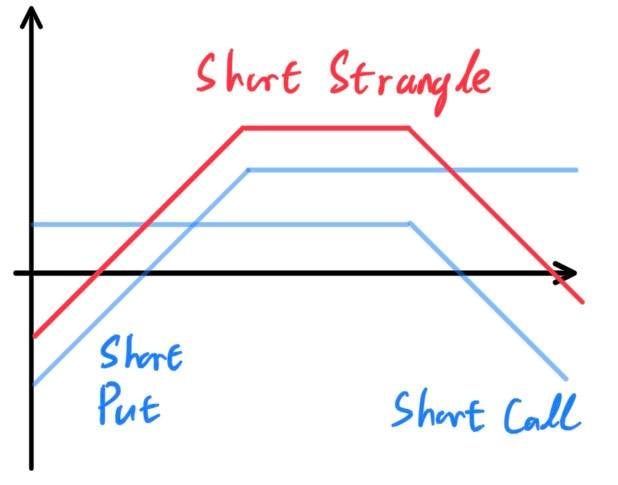 Short Strangle
Short
Put
Short Call